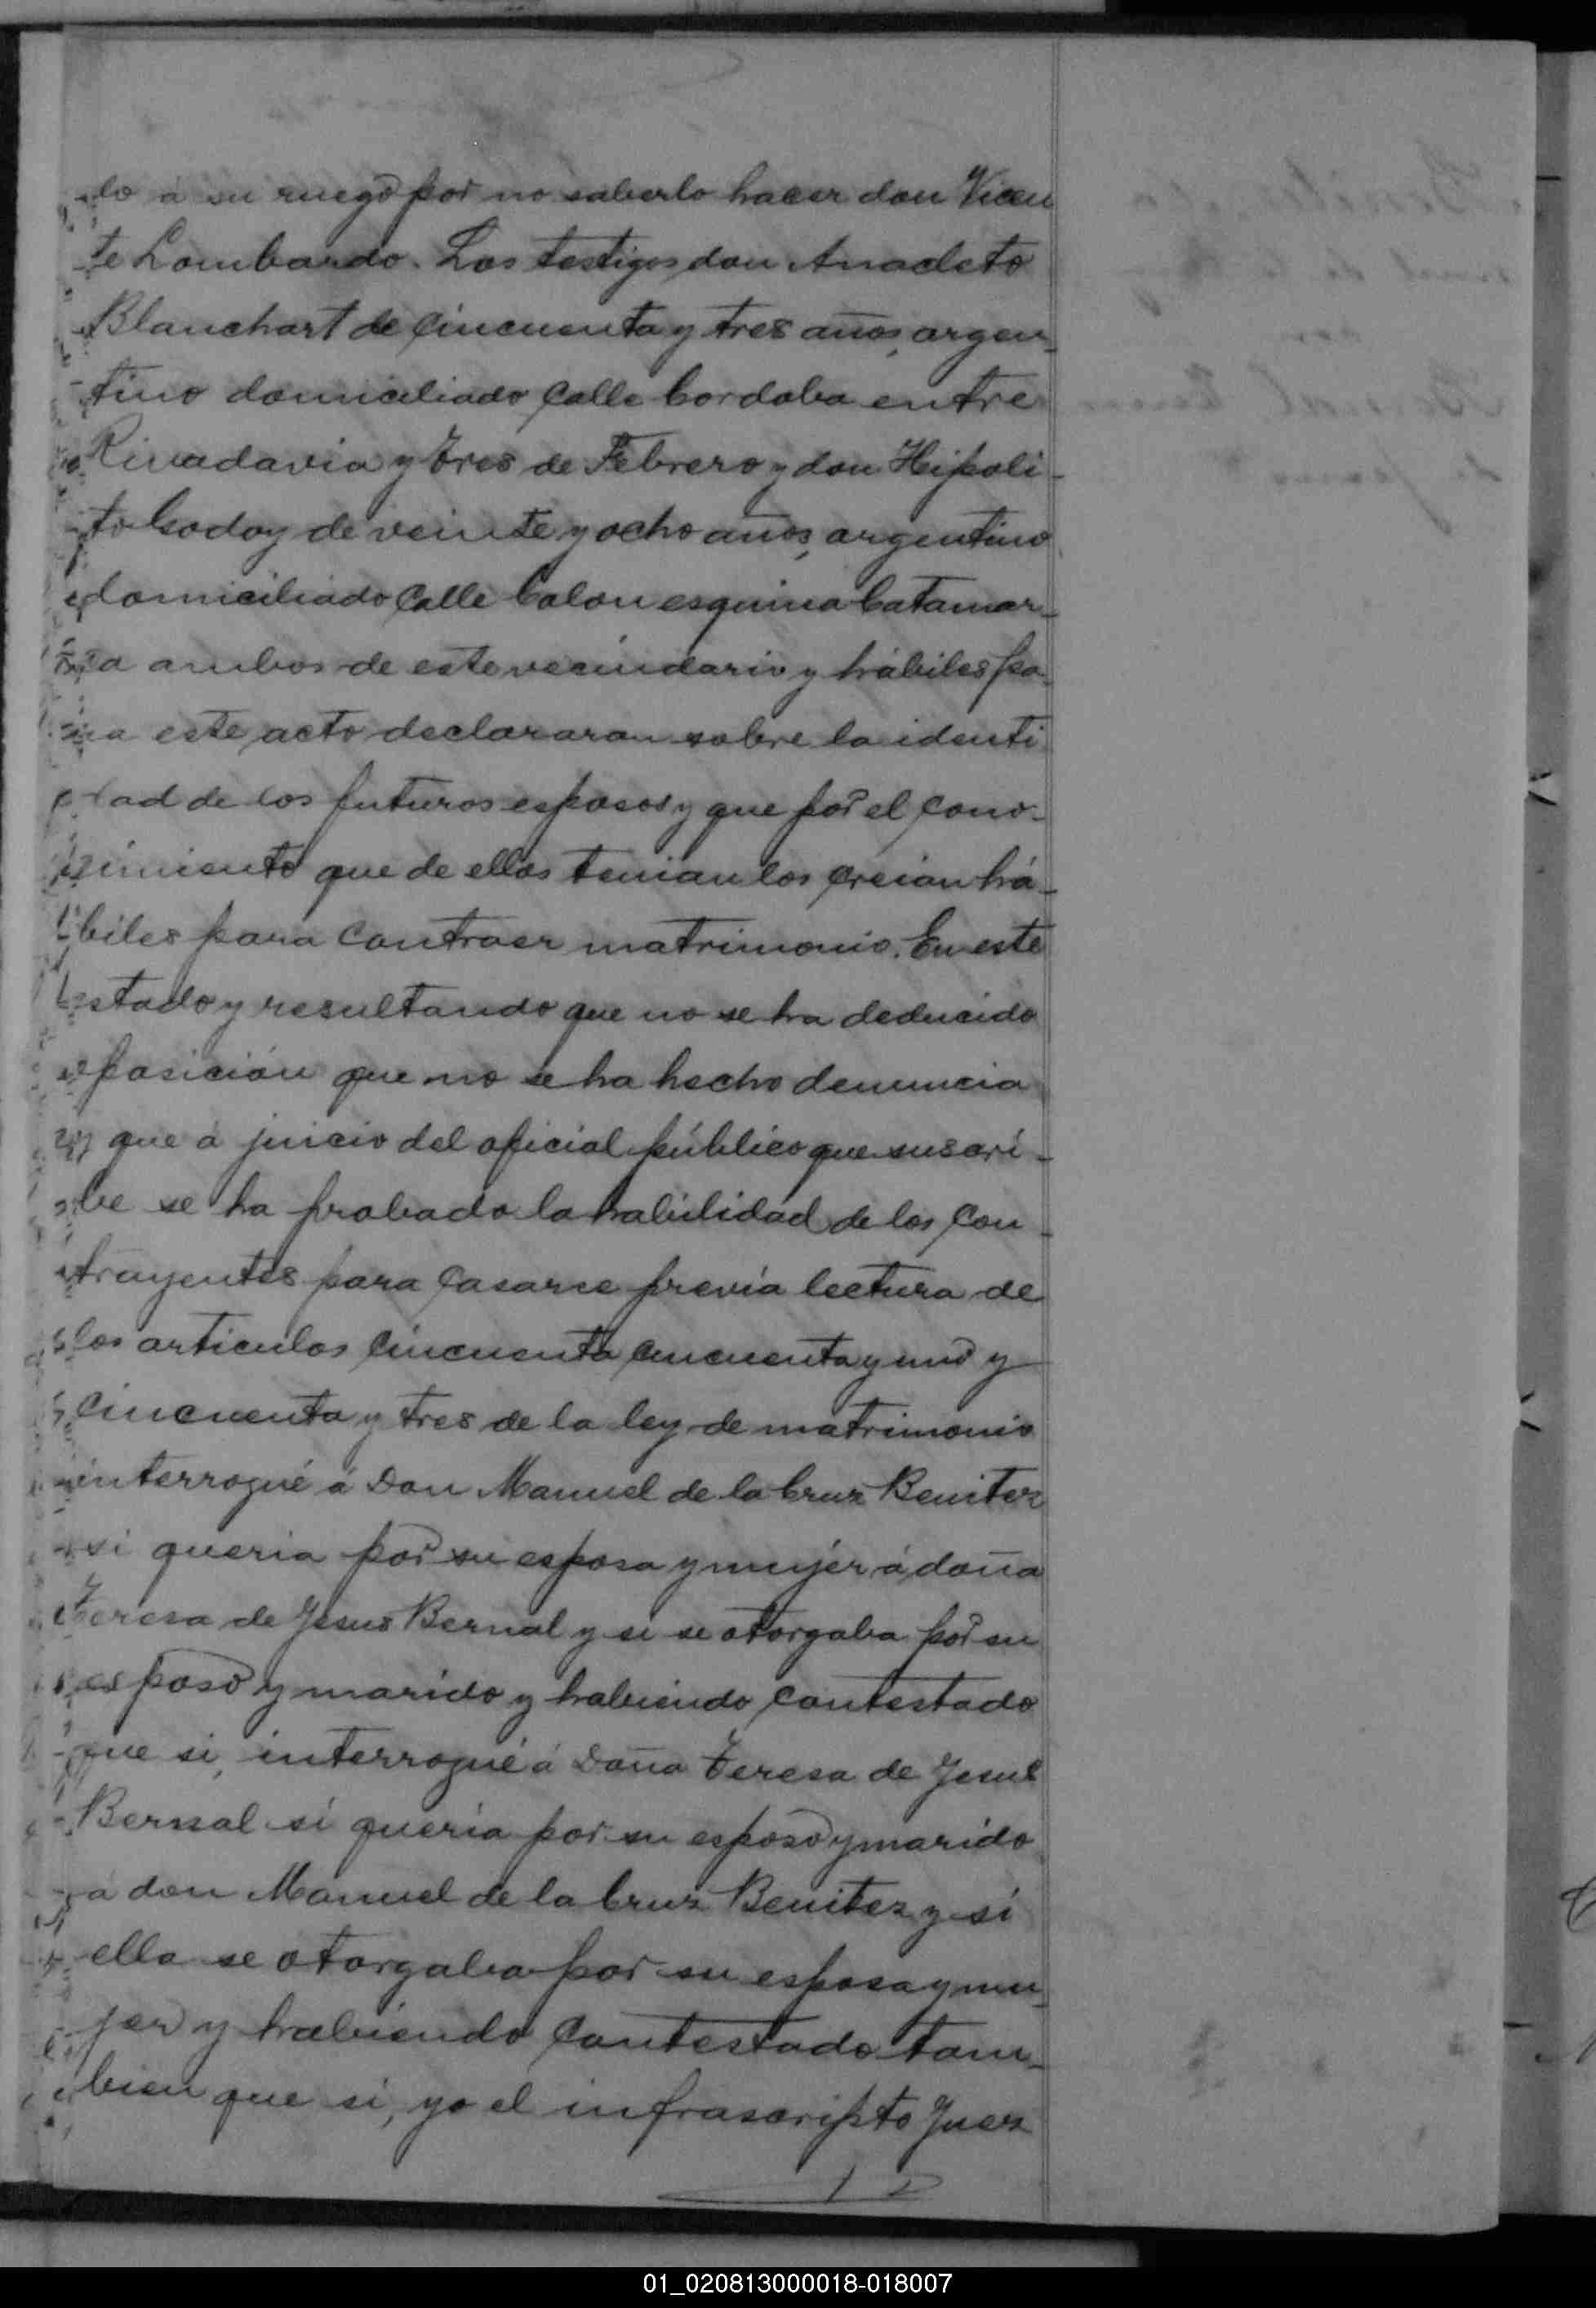 do á su ruego por no saberlo hacer don Vicen
te Lombardo. Los testigos don Anacleto
Blanchart de cincuenta y tres años, argen-
tino domiciliado calle Cordoba entre
Rivadavia y Tres de Febrero y don Hipoli-
to Godoy de veinte y ocho años, argentino
domiciliado calle Colon esquina Catamar-
ca ambos de este vecindario y hábiles pa-
ra este acto declararan sobre la identi
dad de los futuros esposos y que por el cono-
cimiento que de ellos tenian los creian há-
biles para contraer matrimonio. En este
estado y resultando que no se ha deducido
oposición que no se ha hecho denuncia
y que á juicio del oficial público que suscri-
be se ha probado la habilidad de los con-
trayentes para casarse previa lectura de
los articulos cincuenta cincuenta y uno y
cincuenta y tres de la ley de matrimonio
interrogué á Don Manuel de la Cruz Benitez
si queria por su esposa y mujer á doña
Teresa de Jesus Bernal y si se otorgaba por su
esposo y marido y habiendo contestado
que si, interrogué á Doña Teresa de Jesus
Bernal si queria por su esposo y marido
á don Manuel de la Cruz Benitez y si
ella se otorgaba por su esposa y mu-
jer y habiendo contestado tam-
bien que si, yo el infrascripto Juez
01_020813000018-018007